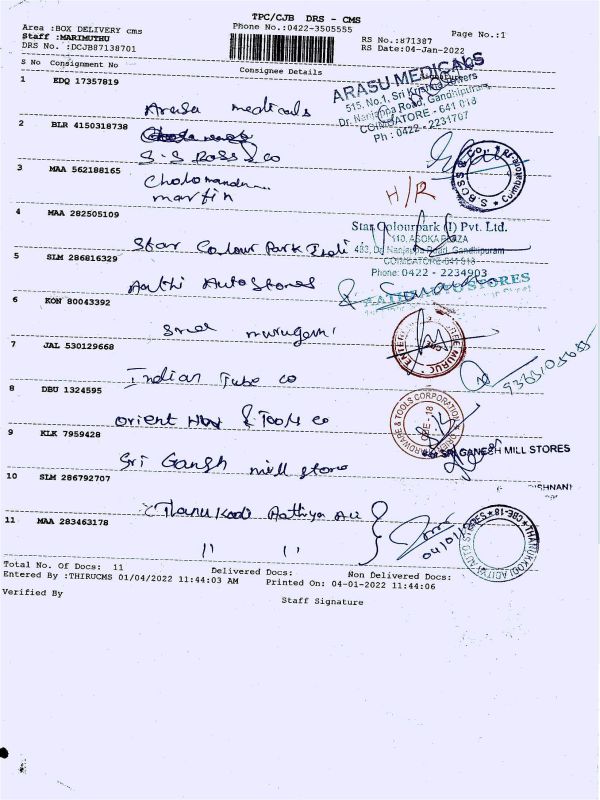 TPC/CJB DRS - CMS
Area :BOX DELIVERY cms
Phone No.:0422-3505555
Staff :MARIMUTHU
RS No.:871387
Page No.:1
DRS No. :DCJB87138701
RS Date:04-Jan-2022
S No Consignment No
Consignee Details
1 EDQ 17357819
Arasu medicals
ARASU MEDICALS
515, No.1, Sri Krishna Towers
Dr. Nanjappa Road, Gandhipuram,
COIMBATORE - 641 018
Ph : 0422 - 2231707
2 BLR 4150318738
S.S Boss & co
S.BOSS & CO. * Coimbatore-18 *
3 MAA 562188165
martin
H/R
4 MAA 282505109
Star Colour Park
Star Colourpark (I) Pvt. Ltd.
110, ASOKA PLAZA
483, Dr. Nanjappa Road, Gandhipuram
COIMBATORE-641 018
Phone: 0422 - 2234903
5 SLM 286816329
Aathi Auto Stores
AATHI AUTO STORES
6 KON 80043392
Sree murugan
7 JAL 530129668
Indian Tube co
8 DBU 1324595
Orient HW & Tools co
ORIENT HARDWARE & TOOLS CORPORATION
CBE - 18
9 KLK 7959428
Sri Gansh mill store
For SRI GANESH MILL STORES
10 SLM 286792707
Thanu Kodi Aathiya Au
11 MAA 283463178
" "
04/01/22
CBE-18 * THANUKODI
Total No. Of Docs: 11
Delivered Docs:
Non Delivered Docs:
Entered By :THIRUCMS 01/04/2022 11:44:03 AM
Printed On: 04-01-2022 11:44:06
Verified By
Staff Signature